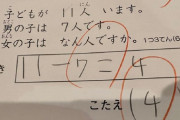 子どもが 11人 います。
男の子は 7人です。
女の子は なん人ですか。 1つ3てん(6
き 11-7=4
こたえ (4